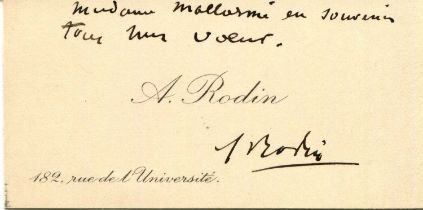 Madame Mallarmé en souvenir
tous mes vœux.
A. Rodin
A Rodin
182, rue de l'Université.